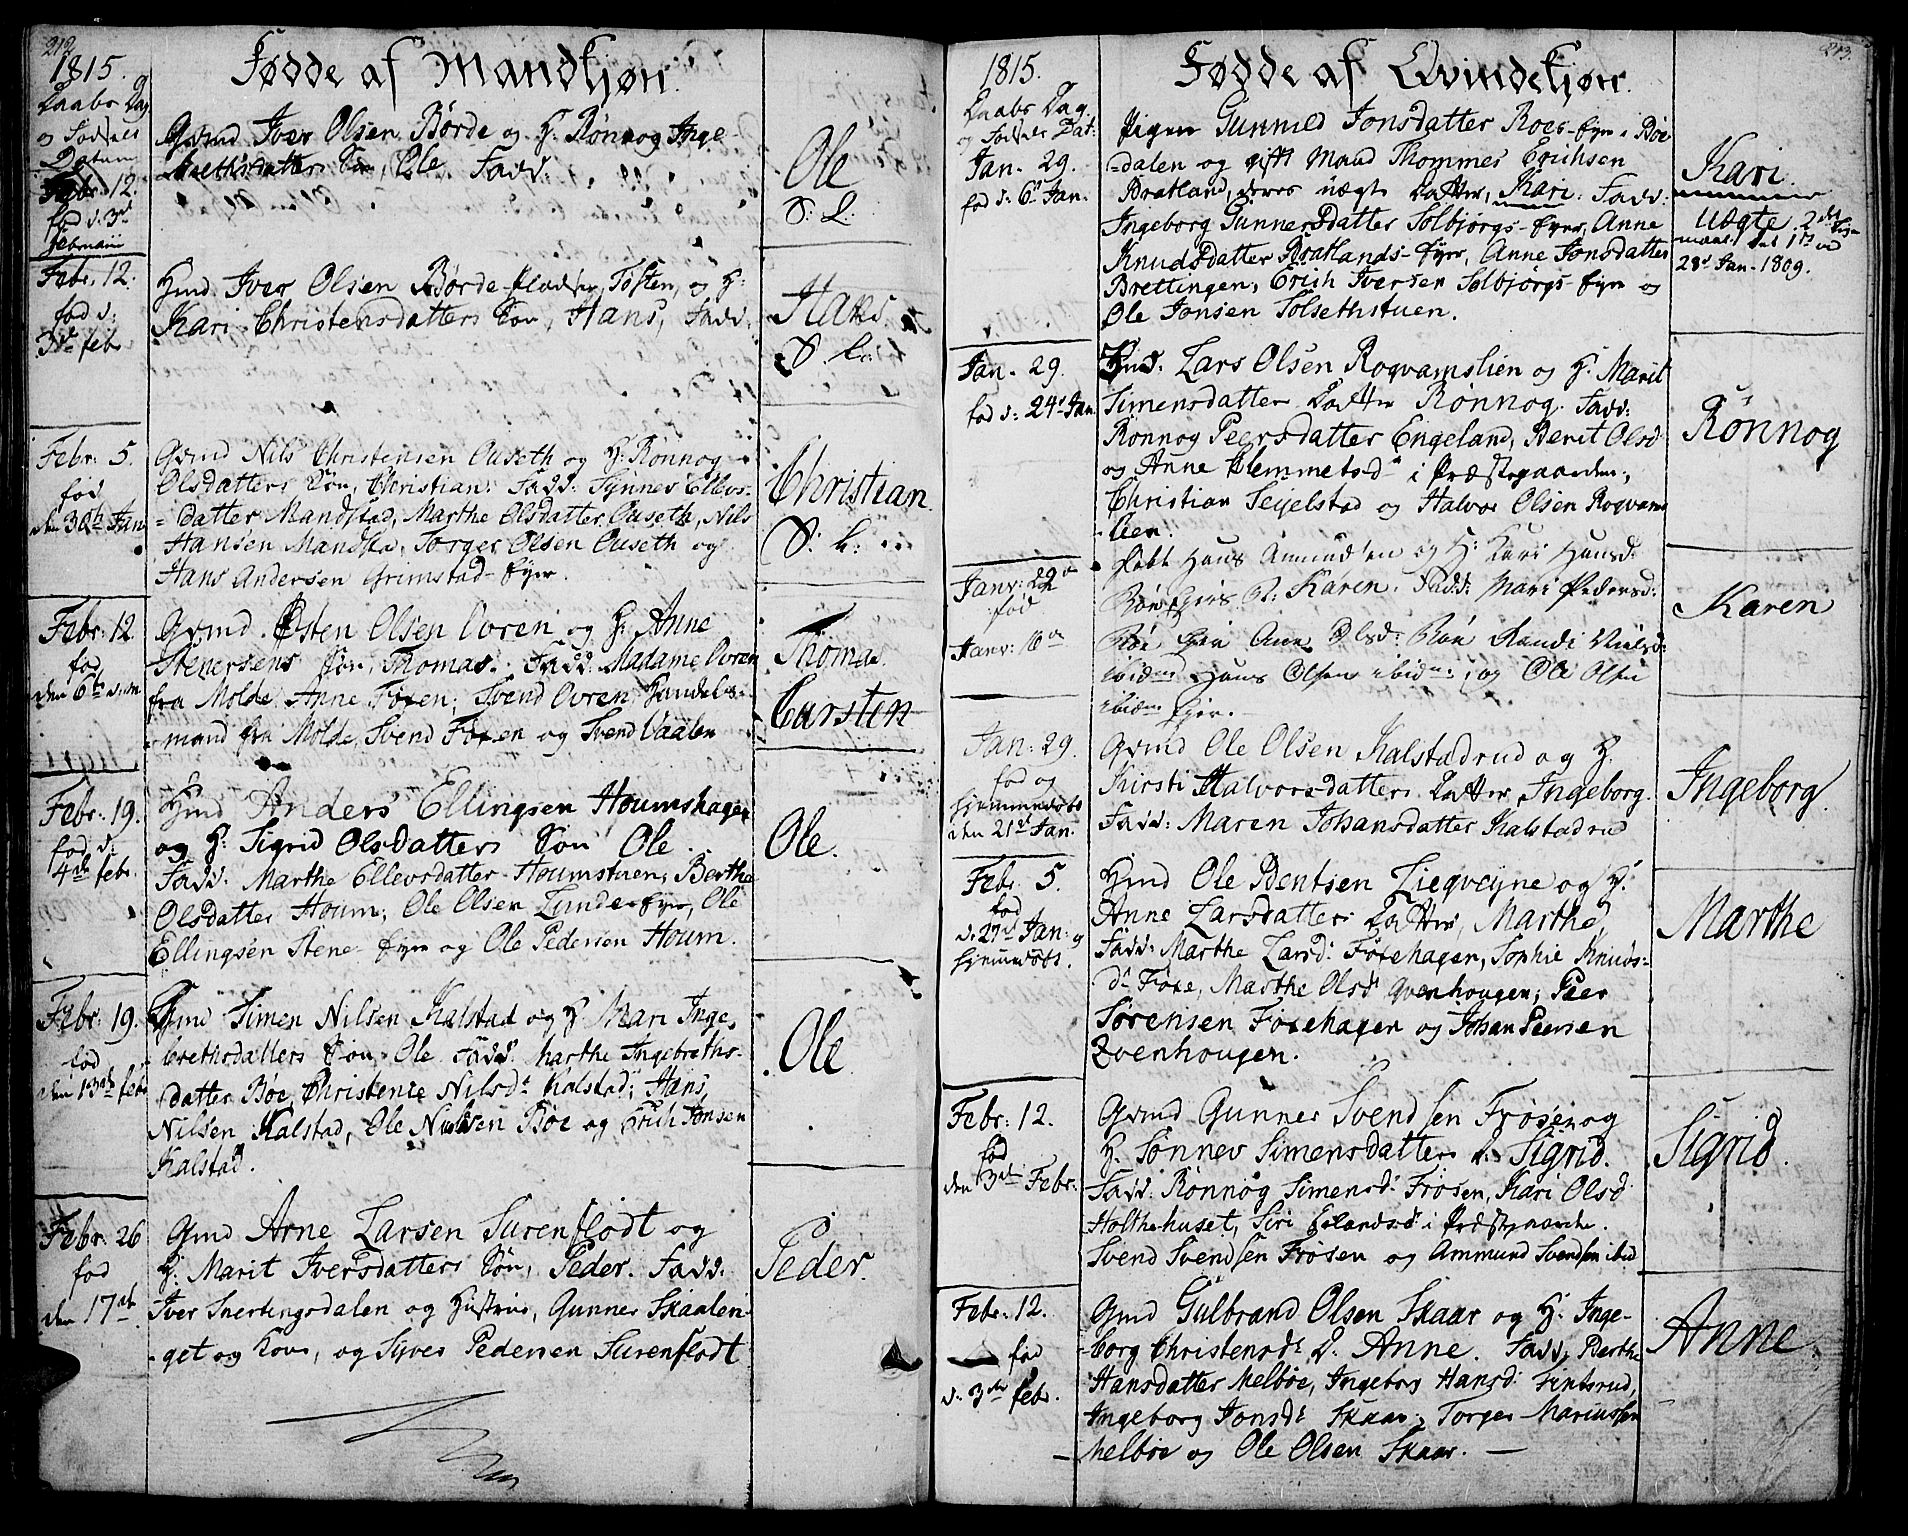 212
1815.
Fødde af Mandkjøn.
Daabs Dag
og Fødsels
Datum
Febr: 12.
fød d. 3de
februarii
Gvmd Iver Olsen Børde og H: Rønnog Inge-
brethsdatters Søn, Ole. Fadd:
Ole
S: L:
Febr. 12.
fød d:
3de feb
Hmd. Iver Olsen Børde-pladsen, Tosten, og H:
Kari Christensdatters Søn, Hans, Fadd:
Hans
S. L:
Febr: 5.
fød
den 30th Jan
Gvmd Nils Christensen Ouseth og H: Rønnog
Olsdatters Søn, Christian: Fadd: Synnev Ellevs-
datter Mandstad, Marthe Olsdatter Ouseth, Nils
Hansen Mandsta, Torger Olsen Ouseth og
Hans Andersen Grimstad-Eyer.
Christian
S: L:
Febr: 12.
fød
den 6te
Gvmd. Østen Olsen Ovren og H: Anne
Stenersens Søn, Thomas. Fadd: Madame Ovren
fra Molde, Anne Foxen; Svend Ovren Handels-
mand fra Molde, Svend Foxen og Svend Vaalen
Thomas
Carsten
Febr: 19.
fød d:
4de febr.
Hmd Anders Ellingsen Houmshagen
og H: Sigrid Olsdatters Søn Ole.
Fadd: Marthe Ellevsdatter Houmstuen; Berthe
Olsdatter Houm; Ole Olsen Lunde-Eyer, Ole
Ellingsen Stene-Eyer og Ole Pedersen Houm.
Ole.
Febr: 19.
fød
den 13de febr
Gvmd Simen Nilsen Kalstad og H. Mari Inge-
brethsdatters Søn. Ole Fadd. Marthe Ingebreths-
datter Bøe, Christenie Nilsd: Kalstad; Hans
Nilsen Kalstad, Ole Nielsen Bøe og Erich Jonsen
Kalstad.
Ole
Febr: 26
fød
den 17de
Gmd Arne Larsen Surenflodt og
H: Marit Iversdatters Søn, Peder. Fadd:
Iver Snertingsdalen og Hustrue, Gunner Skaalen-
get og Kone, og Syver Pedersen Surenflodt
Peder.
213.
1815.
Fødde af Qvindekjøn.
Daabs Dag
og Fødsels Dat:
Jan. 29.
fød d: 6te Jan.
Pigen Gunnild Jonsdatter Roes-Eyer i Bøe
-dalen og gift Mand Thommes Erichsen
Bratland, deres uægte Datter, Kari. Fadd:
Ingeborg Gunnersdatter Solbjørgs-Eyer, Anne
Knudsdatter Bratlands-Eyer, Anne Jonsdatter
Brettingen, Erich Iversen Solbjørgs-Eyer og
Ole Jonsen Solsethstuen.
Kari.
Uægte 2det
maal 1ste
28d Jan. 1809.
Jan. 29.
fød d: 24de Jan
Hmd: Lars Olsen Roqvamslien og H: Marit
Simensdatters Datter Rønnog. Fadd:
Rønnog Peersdatter Engeland, Berit Olsd
og Anne Klemmetsd i Præstegaarden,
Christian Segelstad og Halvor Olsen Roqvams
-lien.
Rønnog
Janv: 29
fød
Janv: 10de
Hans Amundsen og H: Kari Hansd:
D. Karen. Fadd: Mari Pedersd:
Røe Eyer Anne Olsd: Røe Randi Nielsd:
ibidem Hans Olsen ibidm: og Ole Olsen
ibidm Eyer.
Karen
Jan: 29.
fød og
hjemmedøbt
den 21de Jan.
Gvmd Ole Olsen Kalstadrud og H.
Kirsti Halvorsdatters Datter, Ingeborg.
Fadd: Maren Johansdatter Kalstadrud
Ingeborg.
Febr. 5.
fød
d. 27d Jan: og
hjemmedøbt.
Hmd Ole Bentsen Lieqveyne og H:
Anne Larsdatters Datter, Marthe,
Fadd: Marthe Larsd: Foxehagen, Sophie Knuds-
d: Foxe, Marthe Olsd Qvenhougen; Peer
Sørensen Foxehagen og Johan Peersen
Qvenhougen.
Marthe
Febr: 12.
fød
den 3de Febr.
Gvmd Gunner Svendsen Frøsen og
H. Sønnev Simensdatters D. Sigrid.
Fadd: Rønnog Simensd: Frøsen, Kari Olsd
Holthehuset, Siri Erlandsd i Præstegaarden.
Svend Svendsen Frøsen og Ammund Svendsen ibid
Sigrid.
Febr: 12.
fød
d: 3de febr.
Gmd Gulbrand Olsen Skaar og H: Inge-
borg Christensd: D. Anne. Fadd: Berthe
Hansdatter Melbøe, Ingeborg Hansd: Fintsrud,
Ingeborg Jonsd: Skaar, Torger Mariussen
Melbøe og Ole Olsen Skaar.
Anne